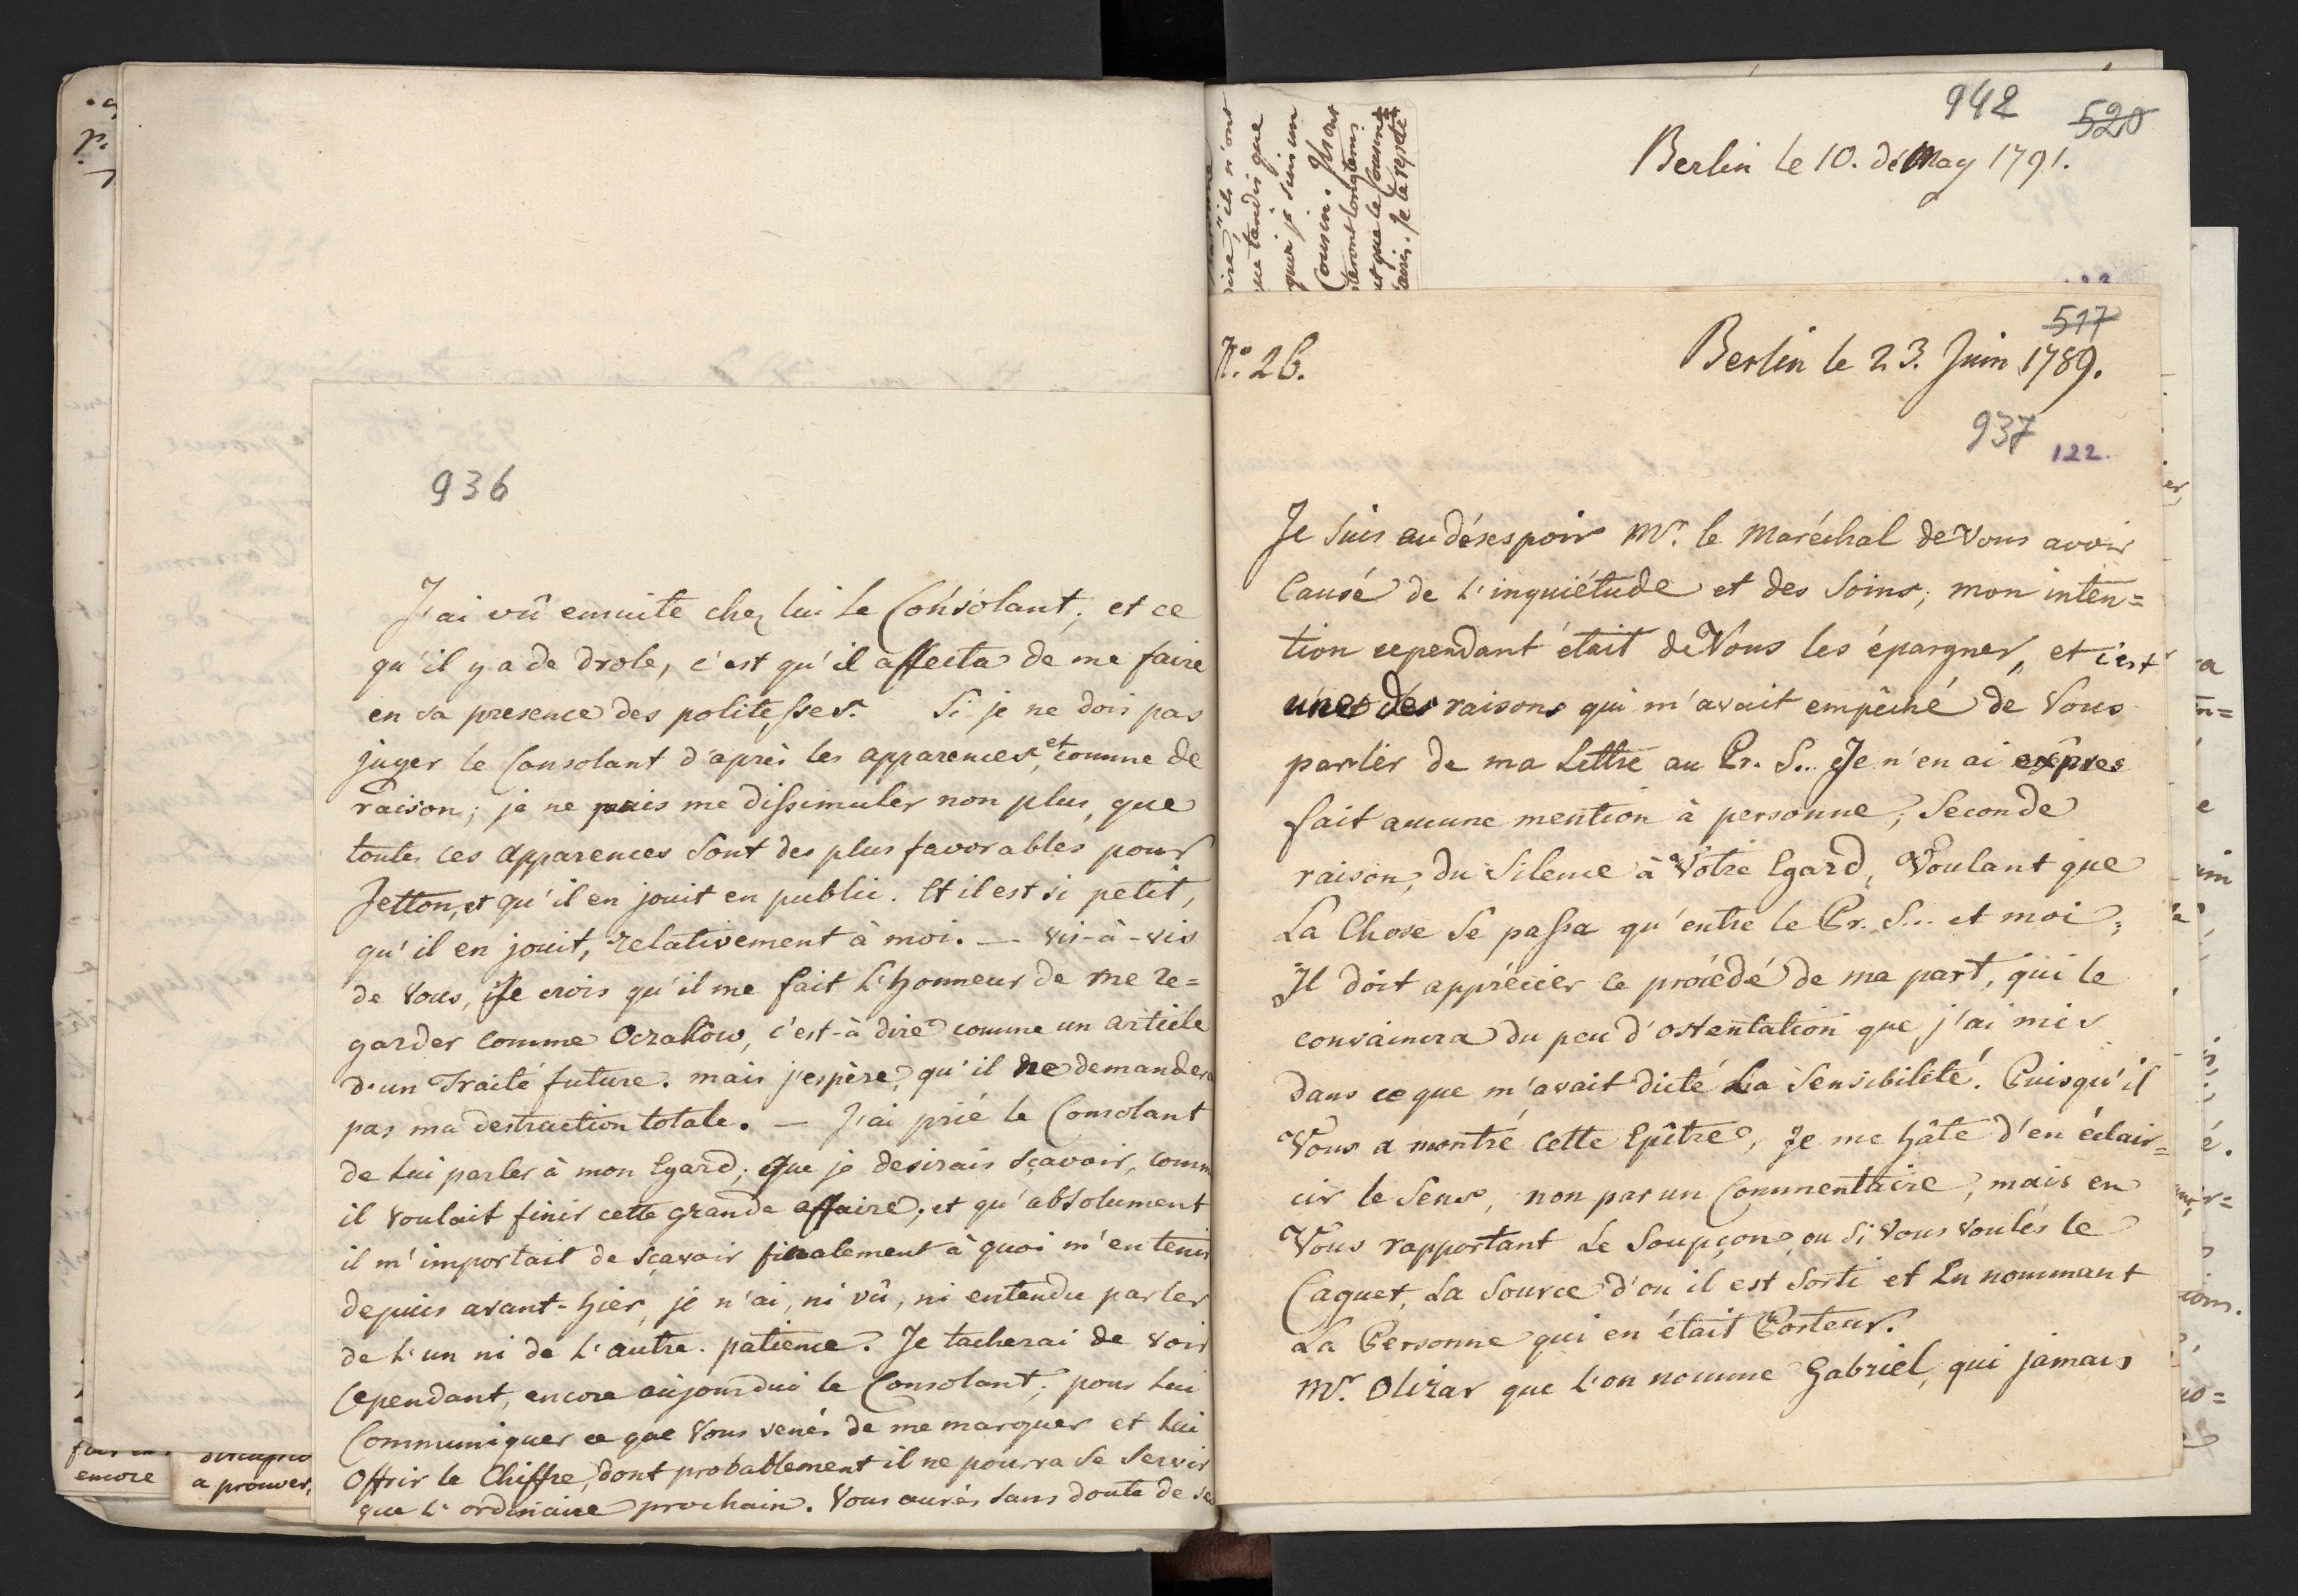 936
J'ai vû ensuite chez lui le Consolant; et ce
qu'il y a de drole, c'est qu'il affecta de me faire
en sa presence des politesses. Si je ne dois pas
juger le Consolant d'après les apparences, et comme de
raison; je ne puis me dissimuler non plus, que
toutes ces apparences sont des plus favorables pour
Jetton, et qu'il en jouit en public. Et il est si petit,
qu'il en jouit, relativement à moi. — vis-à-vis
de Vous, Je crois qu'il me fait L'honneur de me re=
garder comme Oczakôw, c'est-à dire comme un article
d'un Traité future. mais j'espère, qu'il ne demandera
pas ma destruction totale. — J'ai prié le Consolant
de Lui parler à mon Egard; que je desirais sçavoir, comm
il voulait finir cette grande affaire; et qu'absolument
il m'importait de sçavoir finalement à quoi m'en tenir
depuis avant-hier, je n'ai, ni vû, ni entendu parler
de L'un ni de L'autre. patience. Je tacherai de voir
Cependant, encore aujourdui le Consolant; pour Lui
Communiquer ce que Vous venés de me marquer et Lui
Offrir le Chiffre, dont probablement il ne pourra se servir
que L'ordinaire prochain. Vous aurés sans doute de
encore
a prouver,
942
520
Berlin le 10. de May 1791.
ils n'ont
que tandis que
quoi je suis un
Cousin. Ils ont
longtems
que le
Je le repete
517
No. 26.
Berlin le 23. Juin 1789.
937
122.
Je suis au désespoir Mr. le Maréchal de Vous avoir
Causé de L'inquiétude et des Soins; mon inten=
tion cependant était de Vous les épargner, et c'est
unes des raisons qui m'avait empêché de Vous
parler de ma Lettre au Pr. S.. Je n'en ai exprès
fait aucune mention à personne; Seconde
raison, du Silence à Votre Egard, Voulant que
La Chose Se passa qu'entre le Pr. S... et moi;
Il doit apprécier ce procédé de ma part, qui le
convaincra du peu d'ostentation que j'ai mis
dans ce que m'avait dicté La Sensibilité. Puisqu'il
Vous a montré cette Epître, Je me hâte d'en éclair=
cir le Sens, non par un Commentaire, mais en
Vous rapportant Le Soupçon, ou Si Vous voulés le
Caquet, La Source d'ou il est Sorti et En nommant
La Personne qui en était Porteur.
Mr. Olizar que L'on nomme Gabriel, qui jamais